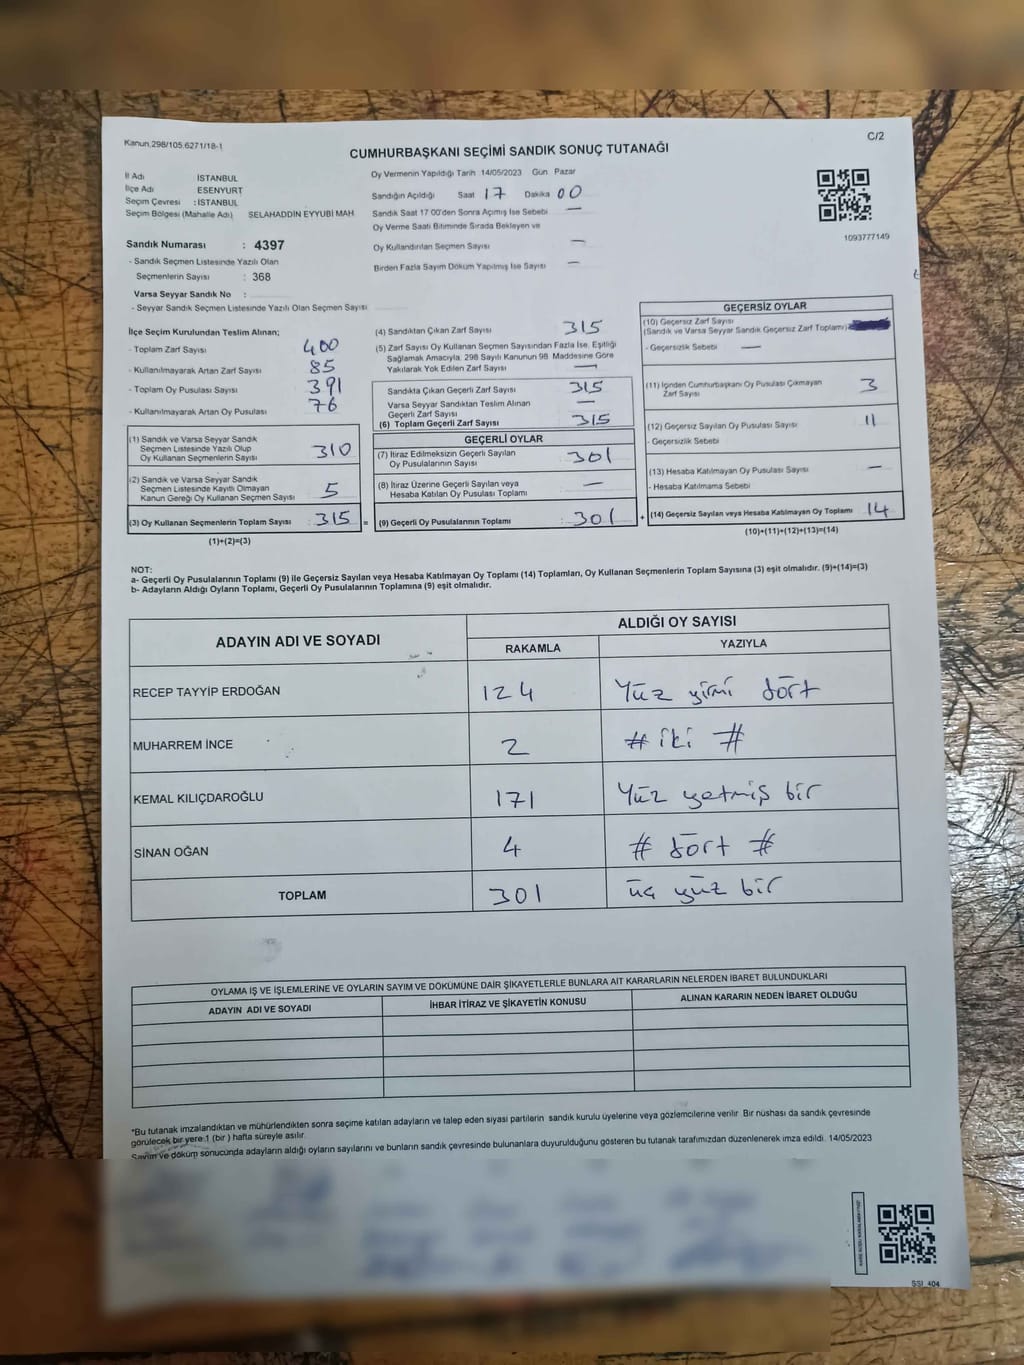 Kanun,298/105,6271/18-1
C/2
CUMHURBAŞKANI SEÇİMİ SANDIK SONUÇ TUTANAĞI
İl Adı İSTANBUL
İlçe Adı ESENYURT
Seçim Çevresi : İSTANBUL
Seçim Bölgesi (Mahalle Adı) SELAHADDİN EYYUBİ MAH
Sandık Numarası : 4397
- Sandık Seçmen Listesinde Yazılı Olan
Seçmenlerin Sayısı : 368
Varsa Seyyar Sandık No :
- Seyyar Sandık Seçmen Listesinde Yazılı Olan Seçmen Sayısı
Oy Vermenin Yapıldığı Tarih 14/05/2023 Gün Pazar
Sandığın Açıldığı Saat 17 Dakika 00
Sandık Saat 17 00'den Sonra Açımış İse Sebebi —
Oy Verme Saati Bitiminde Sırada Bekleyen ve
Oy Kullandırılan Seçmen Sayısı —
Birden Fazla Sayım Döküm Yapılmış İse Sayısı —
1093777149
İlçe Seçim Kurulundan Teslim Alınan;
- Toplam Zarf Sayısı 400
- Kullanılmayarak Artan Zarf Sayısı 85
- Toplam Oy Pusulası Sayısı 391
- Kullanılmayarak Artan Oy Pusulası 76
(1) Sandık ve Varsa Seyyar Sandık
Seçmen Listesinde Yazılı Olup
Oy Kullanan Seçmenlerin Sayısı 310
(2) Sandık ve Varsa Seyyar Sandık
Seçmen Listesinde Kayıtlı Olmayan
Kanun Gereği Oy Kullanan Seçmen Sayısı 5
(3) Oy Kullanan Seçmenlerin Toplam Sayısı : 315 =
(1)+(2)=(3)
(4) Sandıktan Çıkan Zarf Sayısı 315
(5) Zarf Sayısı Oy Kullanan Seçmen Sayısından Fazla İse, Eşitliği
Sağlamak Amacıyla, 298 Sayılı Kanunun 98 Maddesine Göre
Yakılarak Yok Edilen Zarf Sayısı —
Sandıkta Çıkan Geçerli Zarf Sayısı 315
Varsa Seyyar Sandıktan Teslim Alınan
Geçerli Zarf Sayısı —
(6) Toplam Geçerli Zarf Sayısı 315
GEÇERLİ OYLAR
(7) İtiraz Edilmeksizin Geçerli Sayılan
Oy Pusulalarının Sayısı : 301
(8) İtiraz Üzerine Geçerli Sayılan veya
Hesaba Katılan Oy Pusulası Toplamı —
(9) Geçerli Oy Pusulalarının Toplamı : 301 +
GEÇERSİZ OYLAR
(10) Geçersiz Zarf Sayısı
(Sandık ve Varsa Seyyar Sandık Geçersiz Zarf Toplamı)
- Geçersizlik Sebebi —
(11) İçinden Cumhurbaşkanı Oy Pusulası Çıkmayan
Zarf Sayısı 3
(12) Geçersiz Sayılan Oy Pusulası Sayısı 11
- Geçersizlik Sebebi
(13) Hesaba Katılmayan Oy Pusulası Sayısı —
- Hesaba Katılmama Sebebi
(14) Geçersiz Sayılan veya Hesaba Katılmayan Oy Toplamı 14
(10)+(11)+(12)+(13)=(14)
NOT:
a- Geçerli Oy Pusulalarının Toplamı (9) ile Geçersiz Sayılan veya Hesaba Katılmayan Oy Toplamı (14) Toplamları, Oy Kullanan Seçmenlerin Toplam Sayısına (3) eşit olmalıdır. (9)+(14)=(3)
b- Adayların Aldığı Oyların Toplamı, Geçerli Oy Pusulalarının Toplamına (9) eşit olmalıdır.
ADAYIN ADI VE SOYADI ALDIĞI OY SAYISI
RAKAMLA YAZIYLA
RECEP TAYYİP ERDOĞAN 124 Yüz yirmi dört
MUHARREM İNCE 2 # iki #
KEMAL KILIÇDAROĞLU 171 Yüz yetmiş bir
SİNAN OĞAN 4 # dört #
TOPLAM 301 üç yüz bir
OYLAMA İŞ VE İŞLEMLERİNE VE OYLARIN SAYIM VE DÖKÜMÜNE DAİR ŞİKAYETLERLE BUNLARA AİT KARARLARIN NELERDEN İBARET BULUNDUKLARI
ADAYIN ADI VE SOYADI İHBAR İTİRAZ VE ŞİKAYETİN KONUSU ALINAN KARARIN NEDEN İBARET OLDUĞU
*Bu tutanak imzalandıktan ve mühürlendikten sonra seçime katılan adayların ve talep eden siyasi partilerin sandık kurulu üyelerine veya gözlemcilerine verilir. Bir nüshası da sandık çevresinde
görülecek bir yere 1 (bir ) hafta süreyle asılır.
Sayım ve döküm sonucunda adayların aldığı oyların sayılarını ve bunların sandık çevresinde bulunanlara duyurulduğunu gösteren bu tutanak tarafımızdan düzenlenerek imza edildi. 14/05/2023
SSI_404